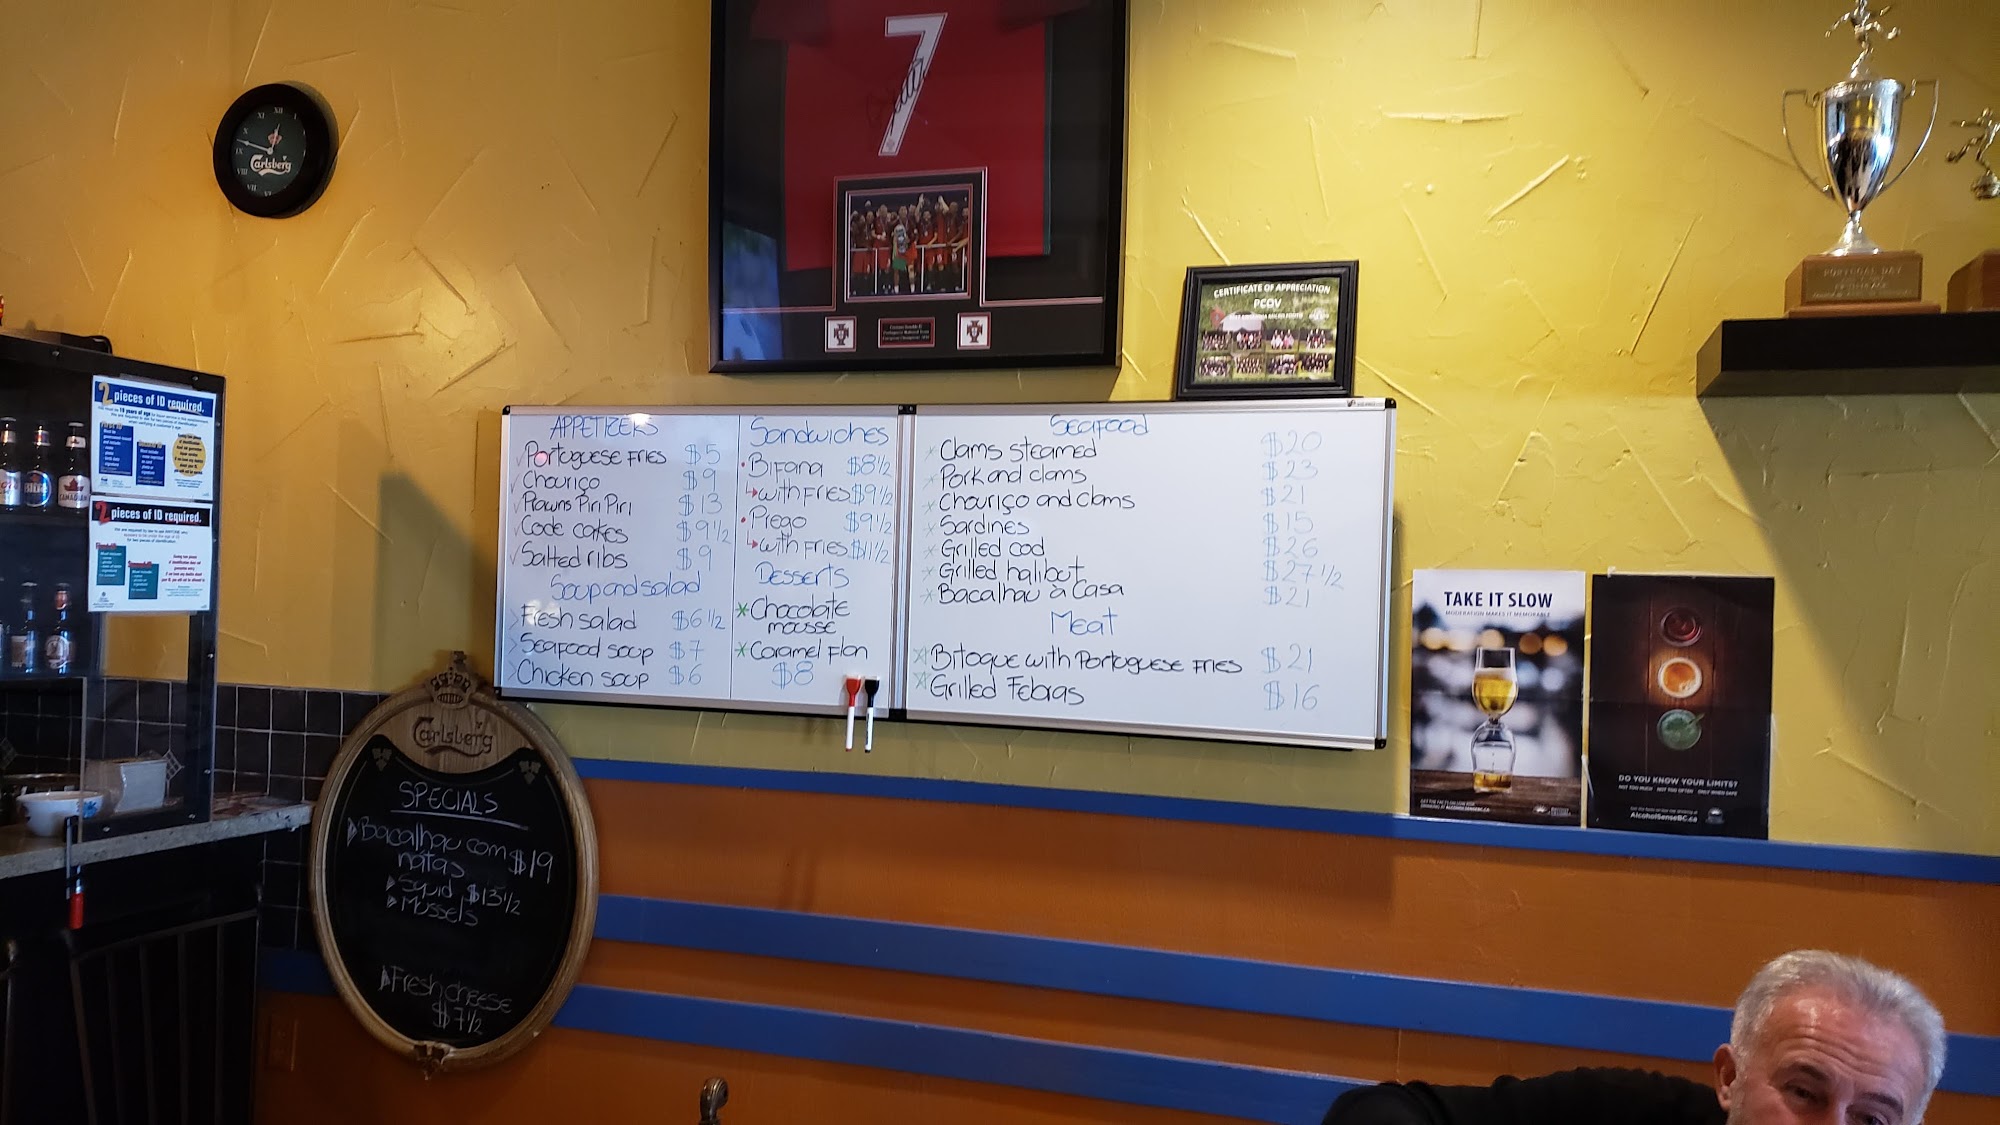 XII
I
XI
X
IX
VIII
VII
VI
Carlsberg
7
CERTIFICATE OF APPRECIATION
PCOV
PORTUGAL DAY
2 pieces of ID required.
2 pieces of ID required.
CANADIAN
APPETIZERS
Portuguese fries $5
Chouriço $9
Prawns Piri Piri $13
Code cakes $9 1/2
Salted ribs $9
Soup and salad
Fresh salad $6 1/2
Seafood soup $7
Chicken soup $6
Sandwiches
• Bifana $8 1/2
↳ with fries $9 1/2
• Prego $9 1/2
↳ with fries $11 1/2
Desserts
* Chocolate
mousse
* Caramel flan
$8
Seafood
* Clams steamed $20
* Pork and clams $23
* Chouriço and clams $21
* Sardines $15
* Grilled cod $26
* Grilled halibut $27 1/2
* Bacalhau à Casa $21
Meat
* Bitoque with Portuguese fries $21
* Grilled Febras $16
TAKE IT SLOW
MODERATION MAKES IT MEMORABLE
DO YOU KNOW YOUR LIMITS?
NOT TOO MUCH NOT TOO OFTEN ONLY WHEN SAFE
AlcoholSenseBC.ca
Carlsberg
SPECIALS
Bacalhau com $19
natas
Squid $13 1/2
Mussels
Fresh cheese
$7 1/2